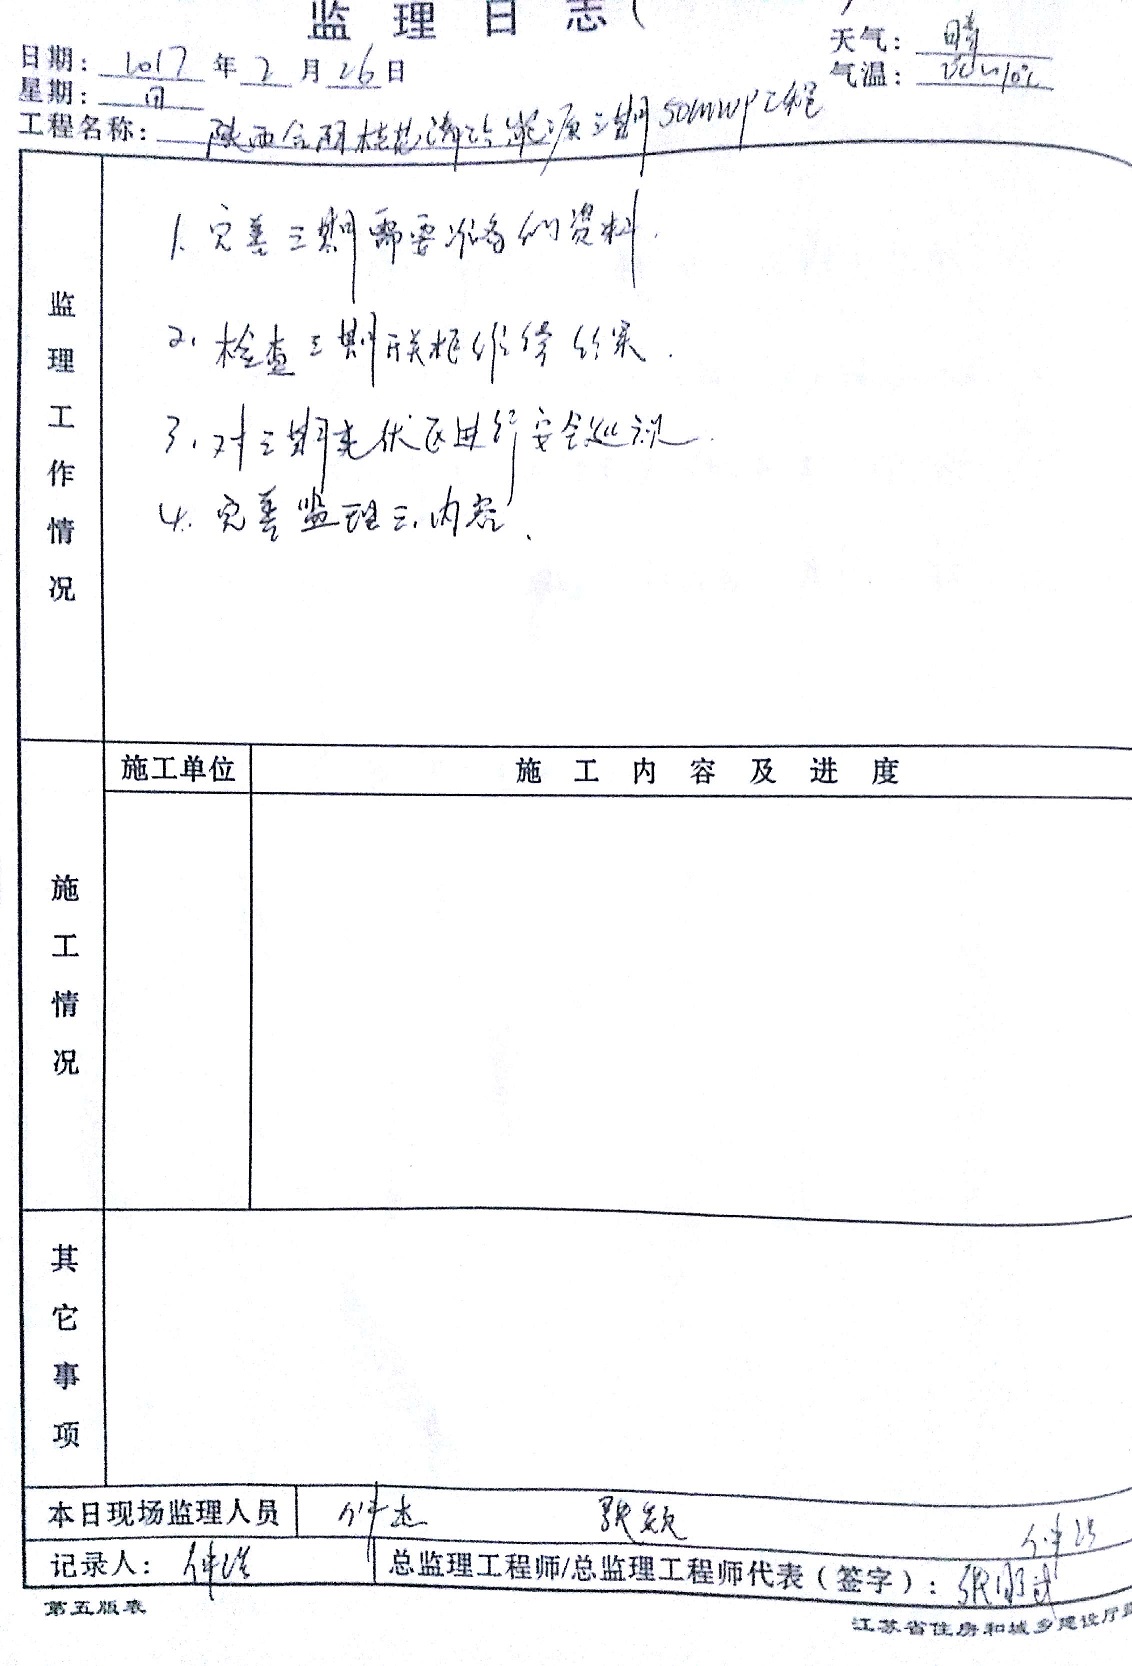 监理日志(
日期: 2017年2月26日 天气: 晴
星期: 日 气温: 2℃~10℃
工程名称: 陕西合阳桂花清洁能源三期50MWp工程
监理工作情况
1. 完善三期需要准备的资料.
2. 检查三期.
3. 对三期光伏区进行安全巡视.
4. 完善监理三.内容.
施工情况
施工单位 施工内容及进度
其它事项
本日现场监理人员
记录人: 总监理工程师/总监理工程师代表(签字):
第五版表 江苏省住房和城乡建设厅监